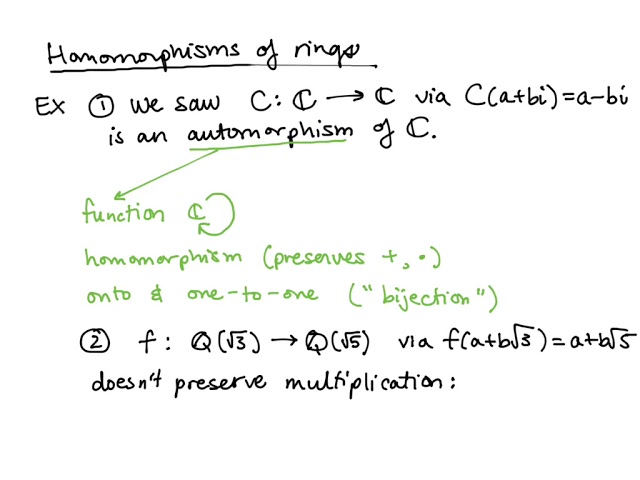 Homomorphisms of rings
Ex ① We saw C: ℂ → ℂ via C(a+bi)=a-bi
is an automorphism of ℂ.
function ℂ
homomorphism (preserves +, •)
onto & one-to-one ("bijection")
② f: ℚ(√3) → ℚ(√5) via f(a+b√3)=a+b√5
doesn't preserve multiplication: